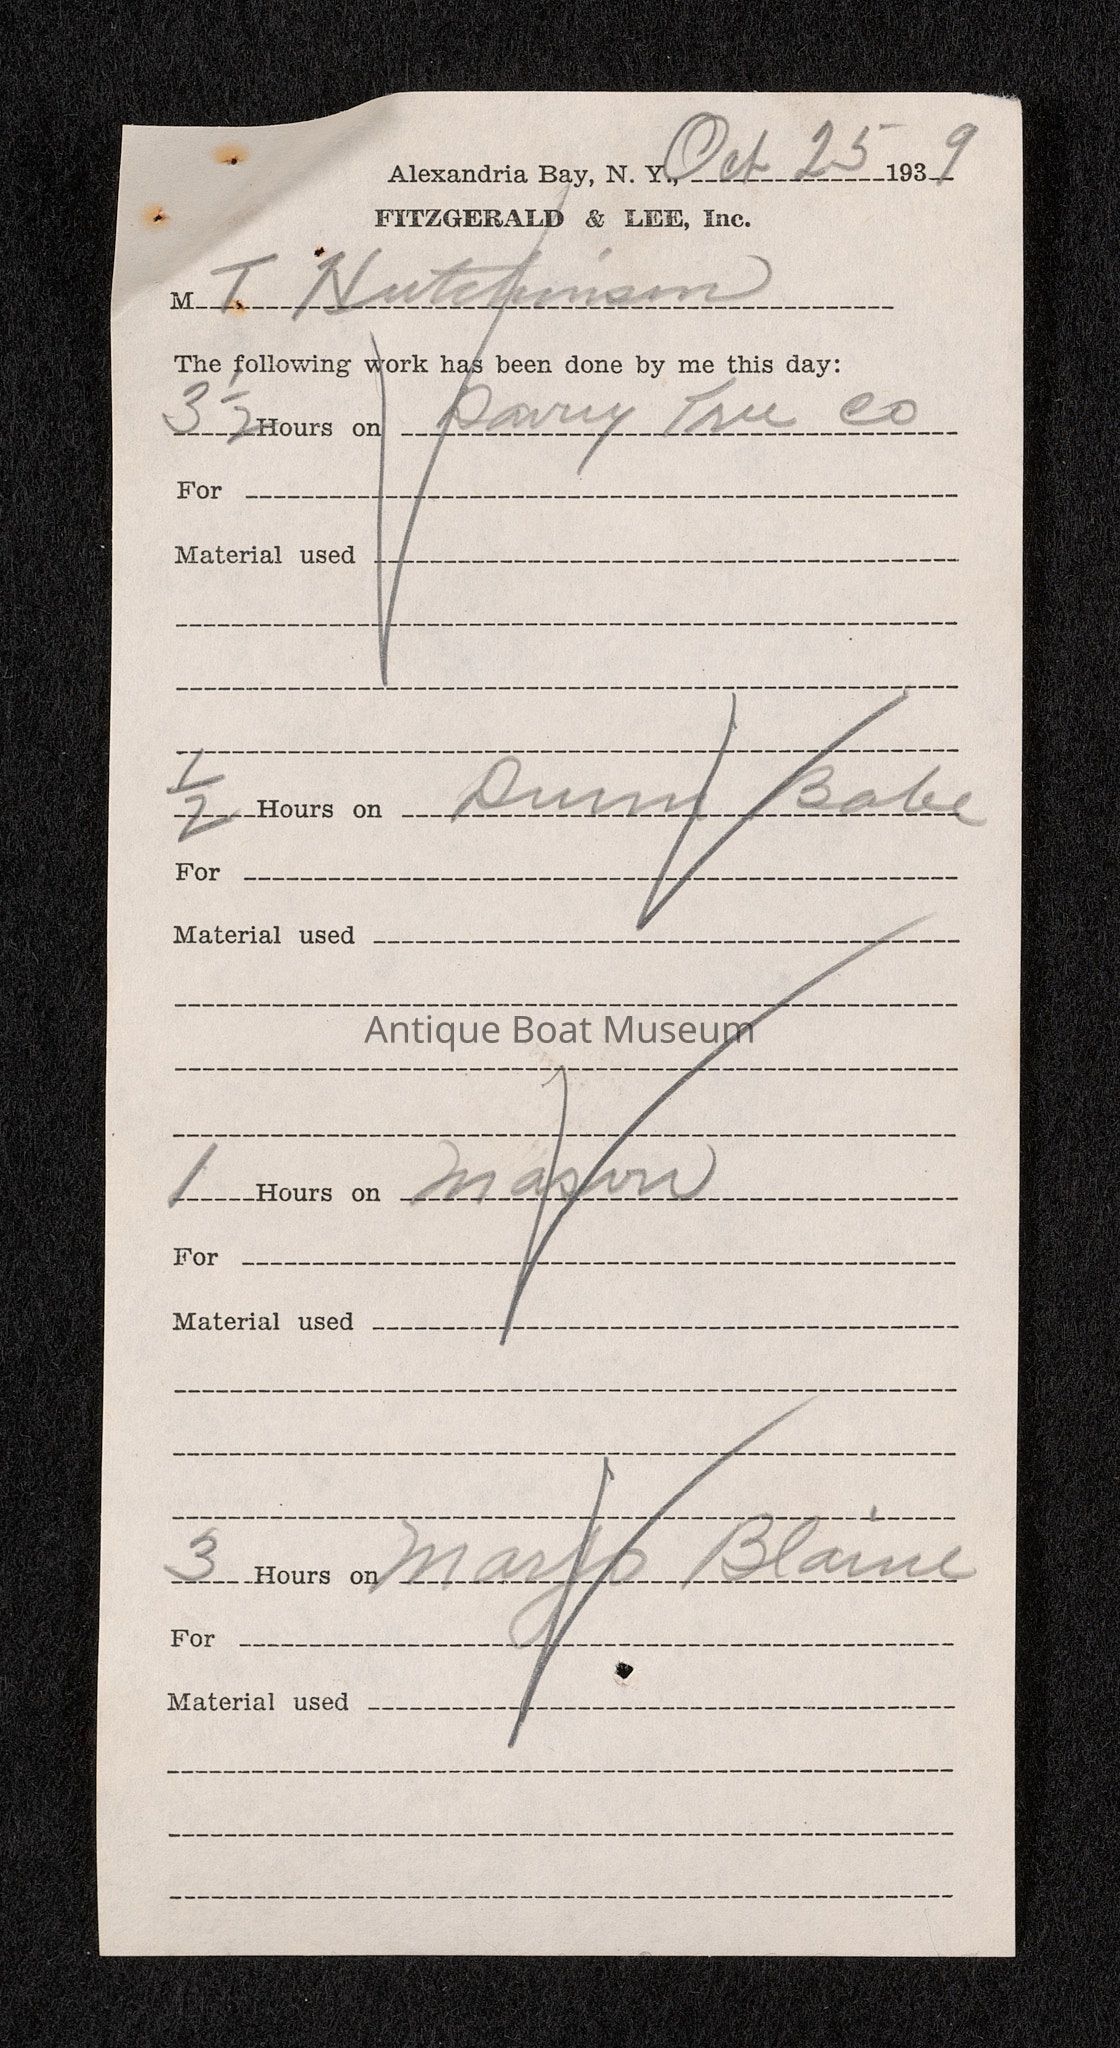 Alexandria Bay, N. Y., Oct 25 1939
FITZGERALD & LEE, Inc.
M T Hutchinson
The following work has been done by me this day:
3 1/2 Hours on Davry Tree Co
For
Material used
1/2 Hours on Dunn Babe
For
Material used
Antique Boat Museum
1 Hours on Mason
For
Material used
3 Hours on Marjo Blaine
For
Material used